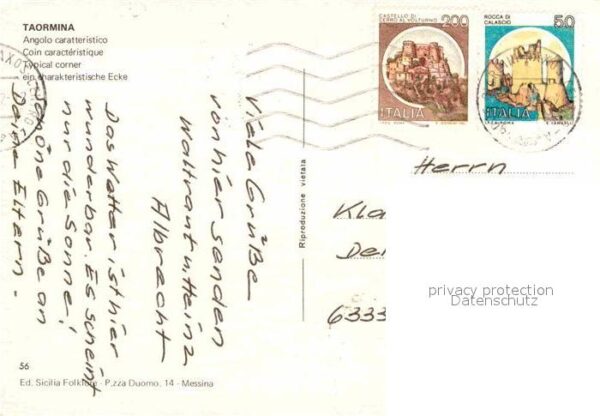 TAORMINA
Angolo caratteristico
Coin caractéristique
Typical corner
ein charakteristische Ecke
Viele Grüße
von hier senden
Waltraut u. Heinz
Albrecht
Das Wetter ist hier
wunderbar. Es scheint
nur die Sonne!
Schöne Grüße an
Deine Eltern.
56
Ed. Sicilia Folklore - P.zza Duomo, 14 - Messina
Riproduzione vietata
CASTELLO DI
CERRO AL VOLTURNO
200
ITALIA
ROCCA DI
CALASCIO
50
ITALIA
Herrn
Kla
De
6333
privacy protection
Datenschutz